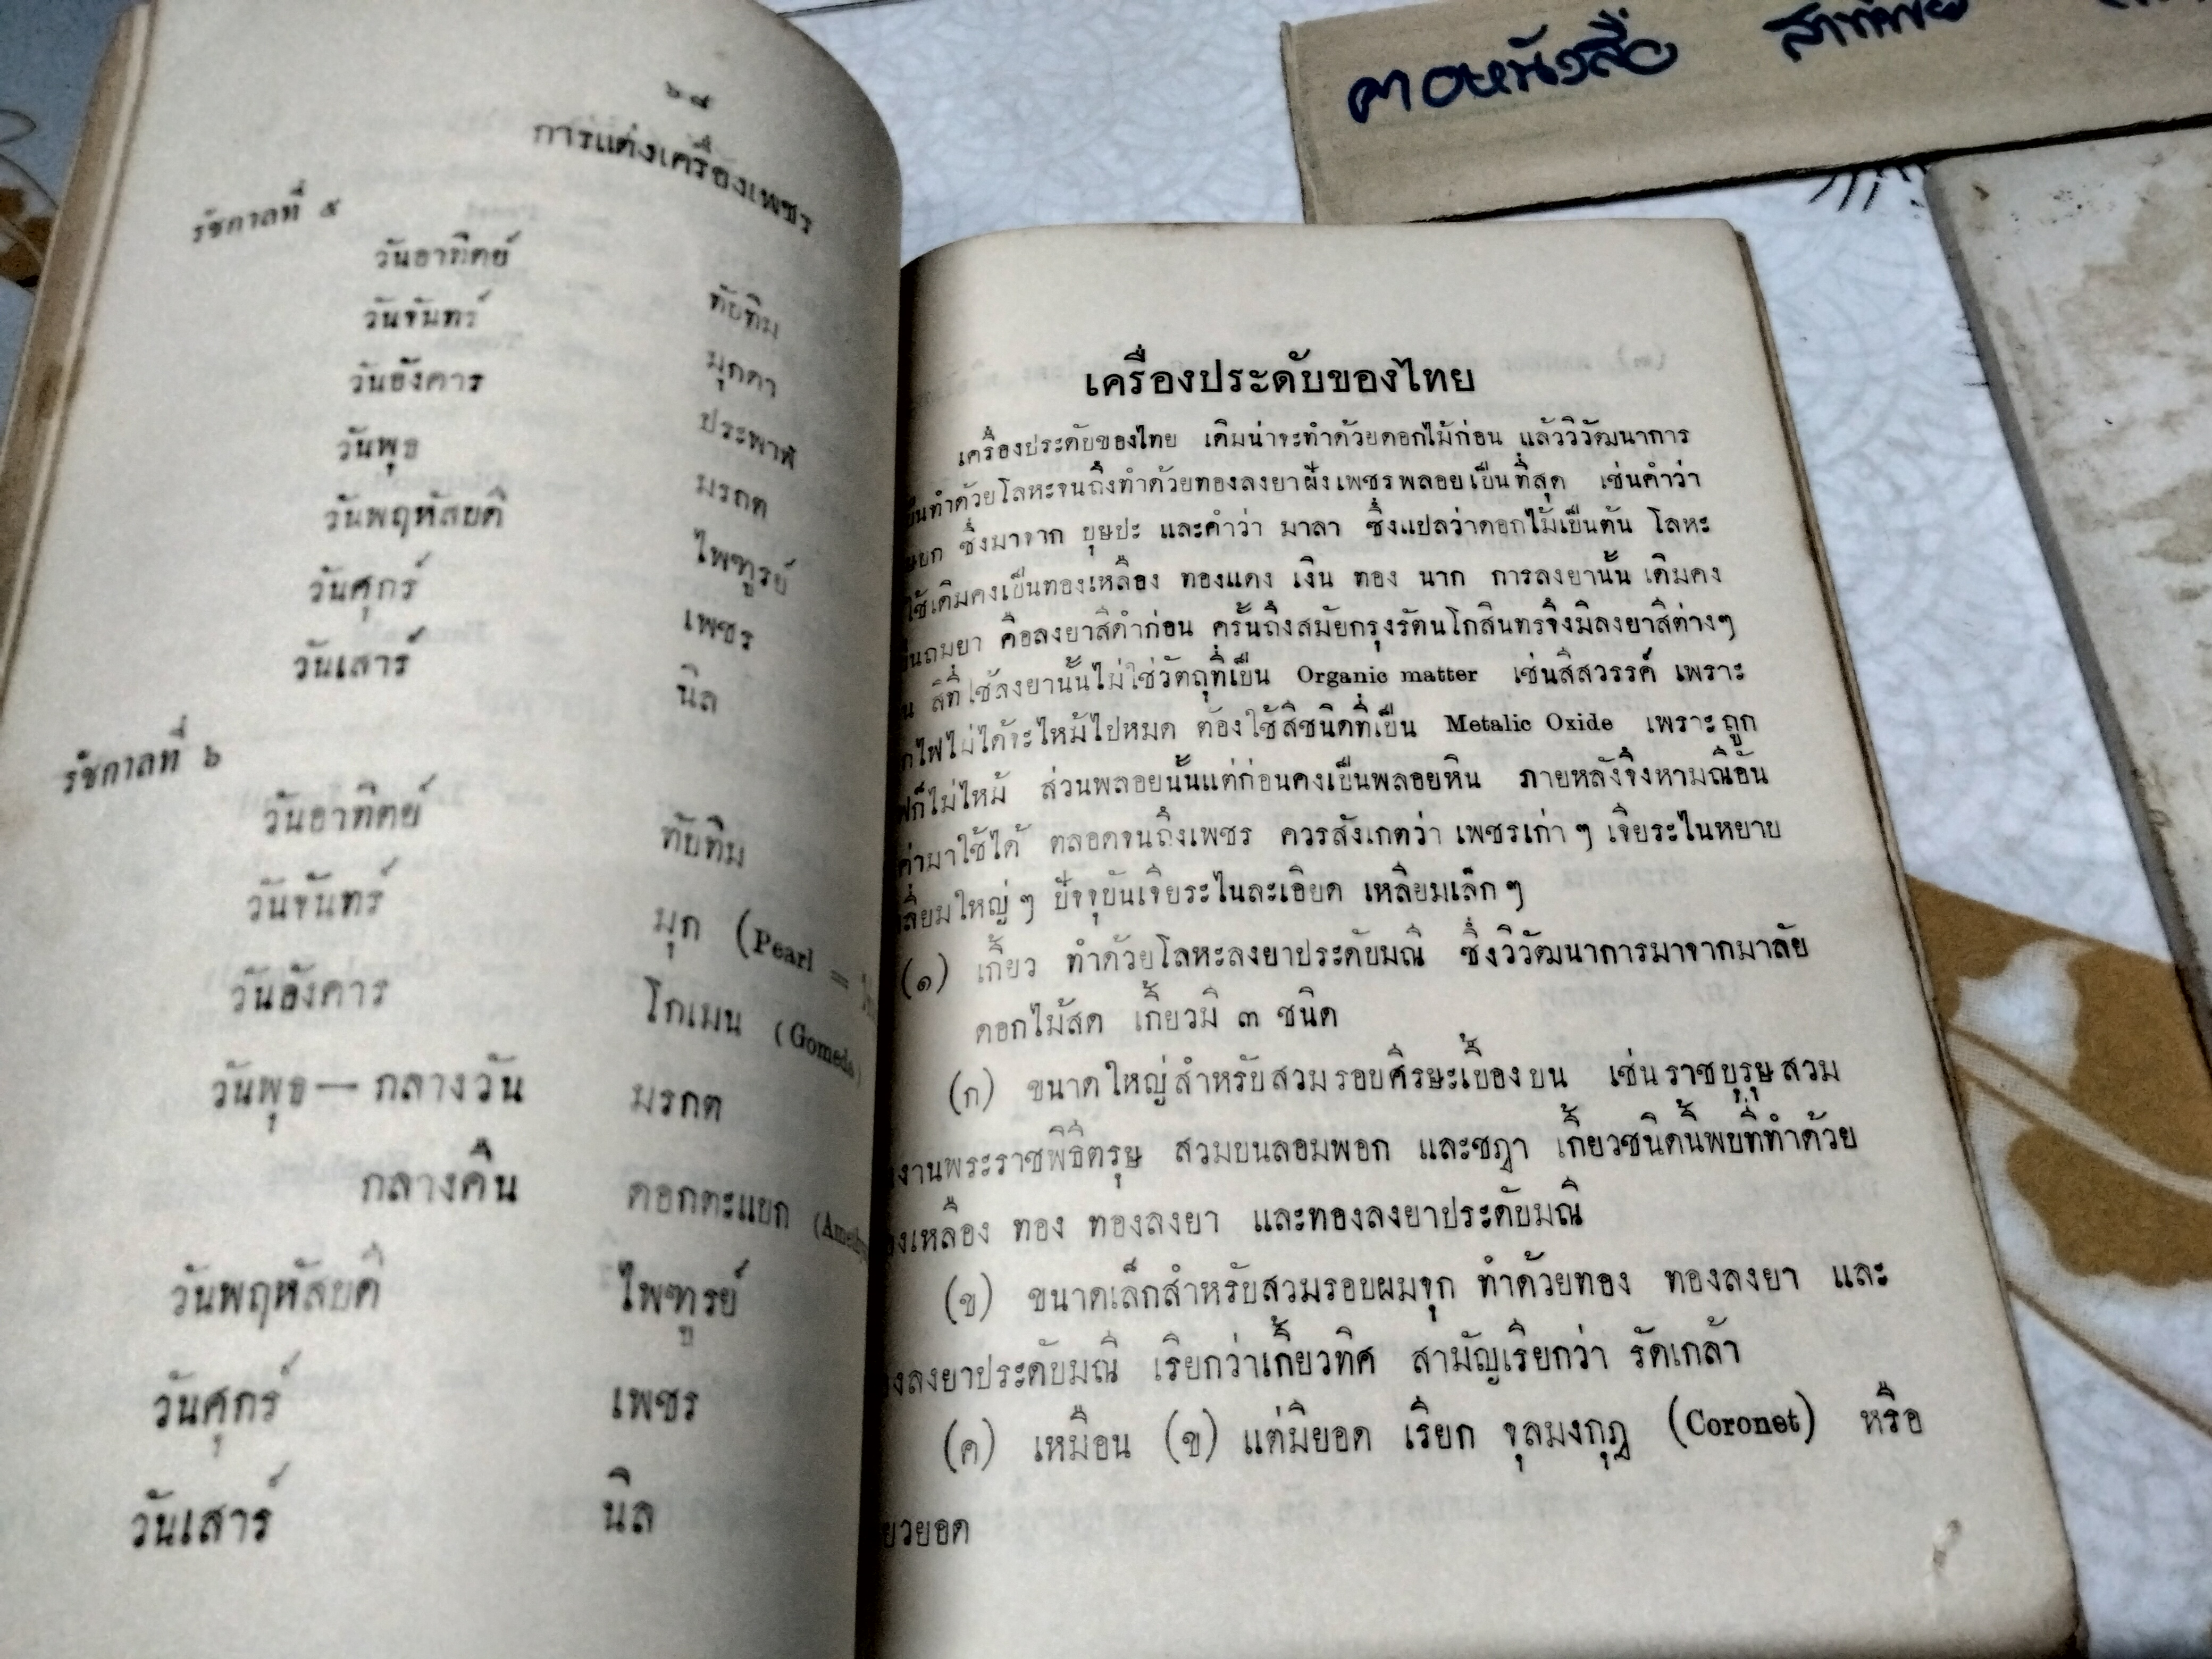 ๖๘
การแต่งเครื่องเพชร
รัชกาลที่ ๕
วันอาทิตย์ ทับทิม
วันจันทร์ มุกดา
วันอังคาร ประพาฬ
วันพุธ มรกต
วันพฤหัสบดี ไพฑูรย์
วันศุกร์ เพชร
วันเสาร์ นิล
รัชกาลที่ ๖
วันอาทิตย์ ทับทิม
วันจันทร์ มุก (Pearl =
วันอังคาร โกเมน (Gomeda)
วันพุธ — กลางวัน มรกต
กลางคืน ดอกตะแบก
วันพฤหัสบดี ไพฑูรย์
วันศุกร์ เพชร
วันเสาร์ นิล
เครื่องประดับของไทย
เครื่องประดับของไทย เดิมน่าจะทำด้วยดอกไม้ก่อน แล้ววิวัฒนาการ
ทำด้วยโลหะจนถึงทำด้วยทองลงยาฝังเพชรพลอยเป็นที่สุด เช่นคำว่า
ซึ่งมาจาก บุษปะ และคำว่า มาลา ซึ่งแปลว่าดอกไม้เป็นต้น โลหะ
ใช้เดิมคงเป็นทองเหลือง ทองแดง เงิน ทอง นาก การลงยานั้น เดิมคง
ถมยา คือลงยาสีดำก่อน ครั้นถึงสมัยกรุงรัตนโกสินทรจึงมีลงยาสีต่างๆ
สีที่ใช้ลงยานั้นไม่ใช่วัตถุที่เป็น Organic matter เช่นสีสวรรค์ เพราะ
ไฟไม่ได้จะไหม้ไปหมด ต้องใช้สีชนิดที่เป็น Metalic Oxide เพราะถูก
ก็ไม่ไหม้ ส่วนพลอยนั้นแต่ก่อนคงเป็นพลอยหิน ภายหลังจึงหามณีอัน
ค่ามาใช้ได้ ตลอดจนถึงเพชร ควรสังเกตว่า เพชรเก่า ๆ เจียระไนหยาบ
ลี่ยมใหญ่ ๆ ปัจจุบันเจียระไนละเอียด เหลี่ยมเล็ก ๆ
(๑) เกี้ยว ทำด้วยโลหะลงยาประดับมณี ซึ่งวิวัฒนาการมาจากมาลัย
ดอกไม้สด เกี้ยวมี ๓ ชนิด
(ก) ขนาดใหญ่สำหรับสวมรอบศีรษะเบื้องบน เช่นราชบุรุษสวม
งานพระราชพิธีตรุษ สวมบนลอมพอก และชฎา เกี้ยวชนิดนี้พบที่ทำด้วย
งเหลือง ทอง ทองลงยา และทองลงยาประดับมณี
(ข) ขนาดเล็กสำหรับสวมรอบผมจุก ทำด้วยทอง ทองลงยา และ
งลงยาประดับมณี เรียกว่าเกี้ยวทิศ สามัญเรียกว่า รัดเกล้า
(ค) เหมือน (ข) แต่มียอด เรียก จุลมงกุฎ (Coronet) หรือ
ยวยอด
ตาอหนังสือ